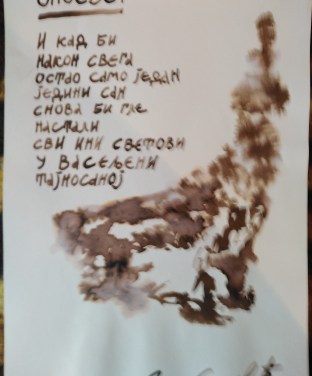 И КАД БИ
НАКОН СВЕГА
ОСТАО САМО ЈЕДАН
ЈЕДИНИ САН
СНОВА БИ ГЛЕ
НАСТАЛИ
СВИ ИНИ СВЕТОВИ
У ВАСЕЉЕНИ
ТАЈНОСАНОЈ